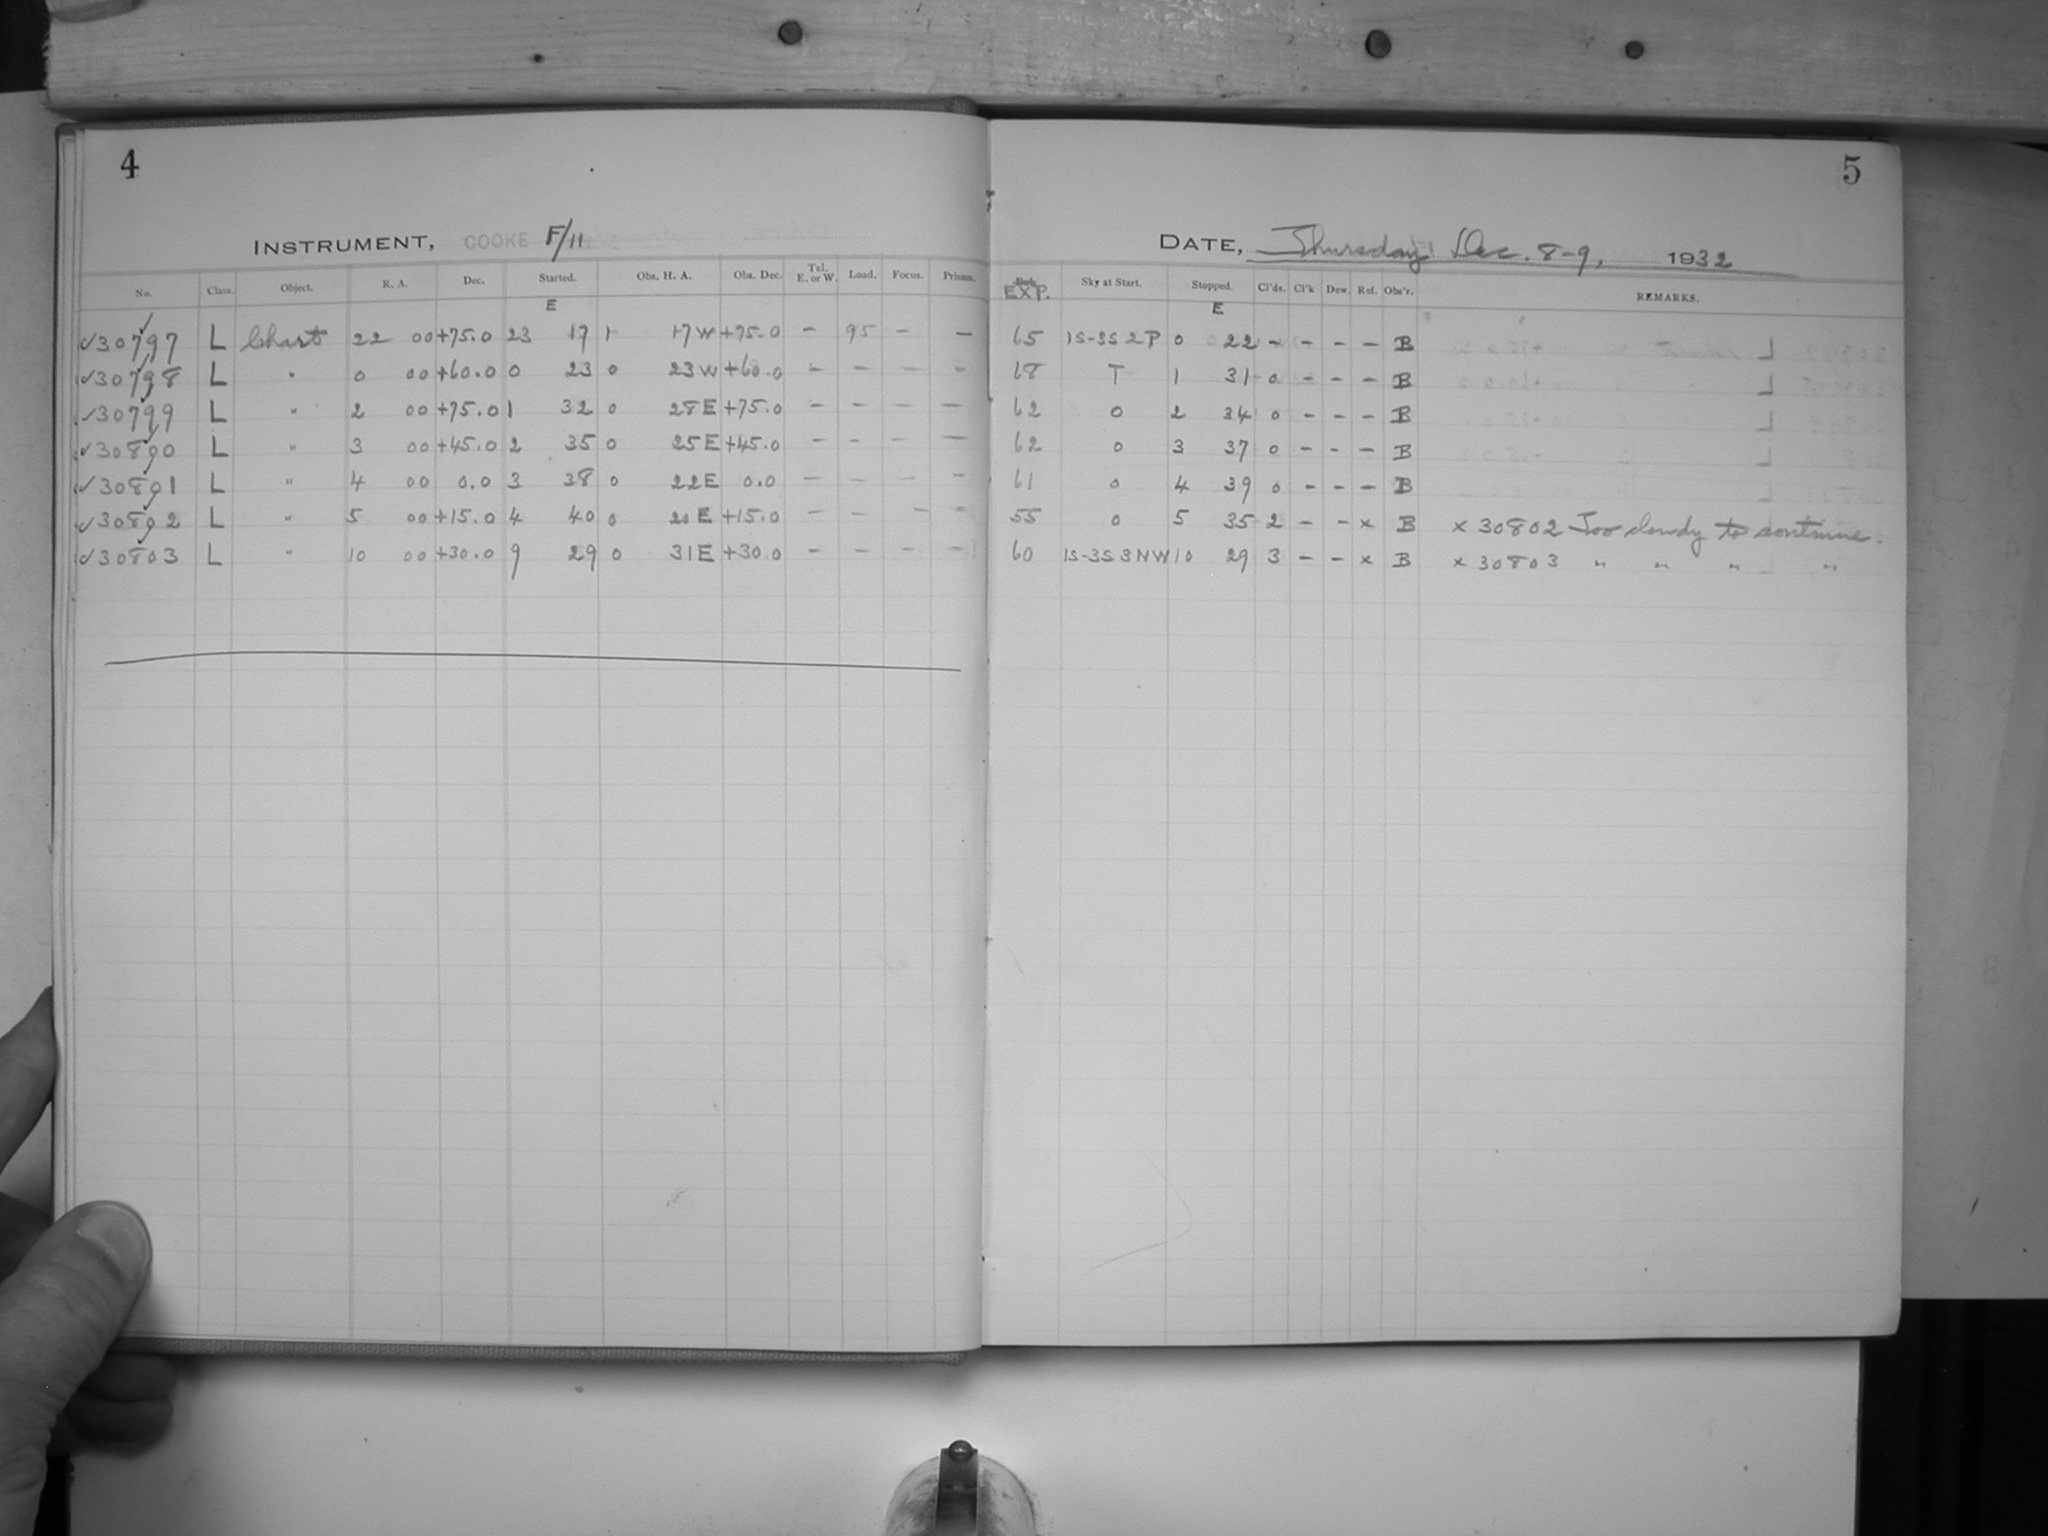 4
INSTRUMENT, COOKE F/11
No. Class. Object. R. A. Dec. Started. Obs. H. A. Obs. Dec. Tel. E. or W. Load. Focus. Prisms.
E
✓30797 L Chart 22 00 +75.0 23 17 1 17W +75.0 - 95 - -
✓30798 L " 0 00 +60.0 0 23 0 23W +60.0 - - - -
✓30799 L " 2 00 +75.0 1 32 0 28E +75.0 - - - -
✓30800 L " 3 00 +45.0 2 35 0 25E +45.0 - - - -
✓30801 L " 4 00 0.0 3 38 0 22E 0.0 - - - -
✓30802 L " 5 00 +15.0 4 40 0 20E +15.0 - - - -
✓30803 L " 10 00 +30.0 9 29 0 31E +30.0 - - - -
5
DATE, Thursday Dec. 8-9, 1932
EXP. Sky at Start. Stopped. Cl'ds. Cl'k Dew. Ref. Obs'r. REMARKS.
E
65 1S-3S2P 0 22 - - - - B
68 T 1 31 0 - - - B
62 0 2 34 0 - - - B
62 0 3 37 0 - - - B
61 0 4 39 0 - - - B
55 0 5 35 2 - - x B x 30802 Too cloudy to continue.
60 1S-3S3NW 10 29 3 - - x B x 30803 " " " "